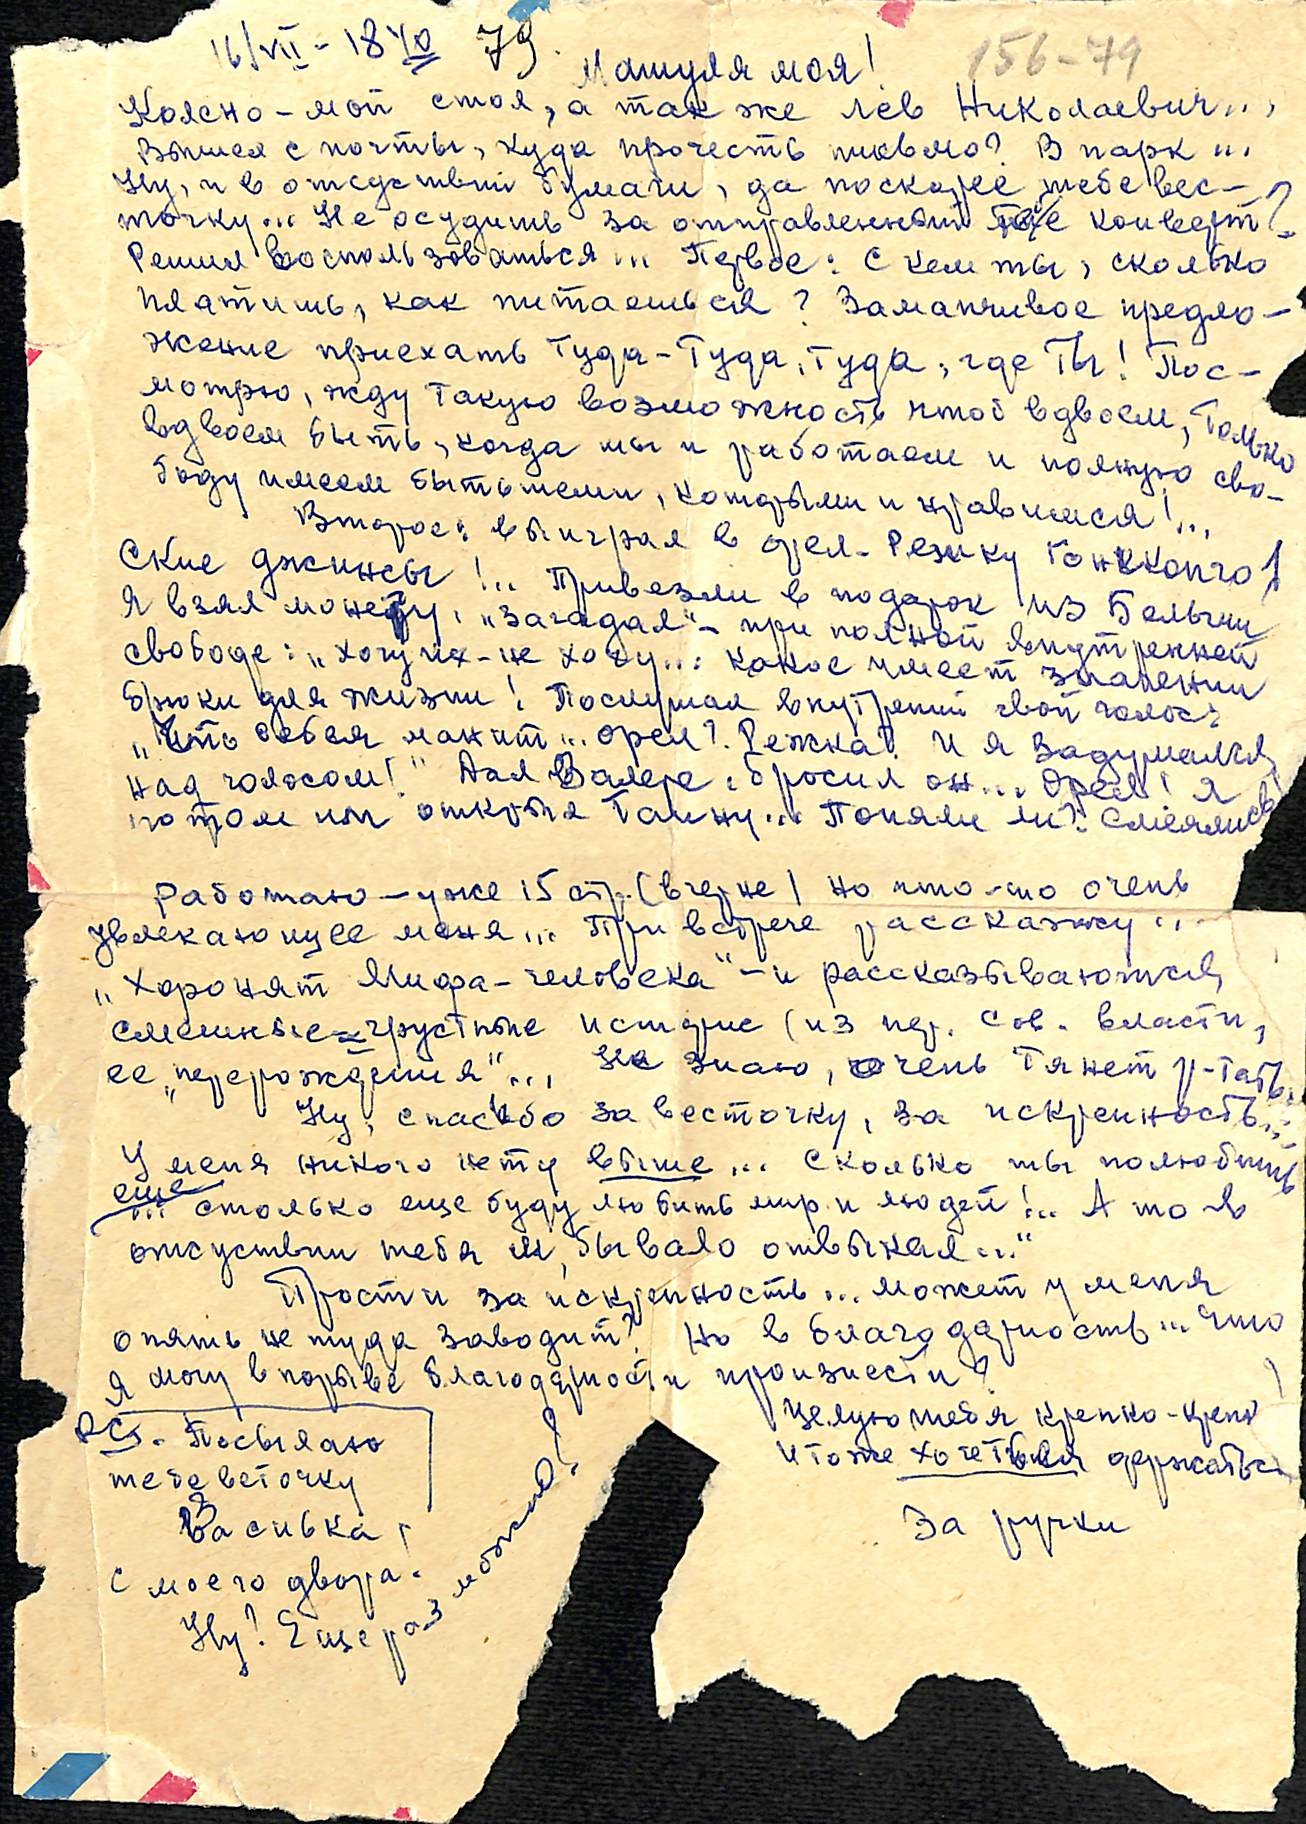 16/VII - 18 40 79
156-79
Машуля моя!
Коясно-мой стол, а так же Лев Николаевич...,
Вышел с почты, куда прочесть письмо? В парк...
Ну, и в отсудствии бумаги, да поскорее тебе вес-
точку... Не осудишь за отправленный конверт?
Решил воспользоваться... Первое: С кем ты, сколько
платишь, как питаешься? Заманчивое предло-
жение приехать Туда-Туда, Туда, где Ты! Пос-
мотрю, жду такую возможность чтоб вдвоем, Только
вдвоем быть, когда мы и работаем и полную сво-
боду имеем быть теми, которыми и нравимся!..,
Второе: выиграл в орел-Решку Гонкконго
Ские джинсы!.. Привезли в подарок из Бельгии
Я взял монету, „Загадал" - при полной внутренней
свободе: „хочу их-не хочу..: какое имеет значении
брюки для жизни! Послушал внутренний свой голос:
„Что себея манит... орел? Режка? И я задумался
над голосом!" Дал Валере, бросил он... Орел! Я
потом им открыл Таину... Поняли ли? Смеялись
Работаю - уже 15 стр. (вчерне) но что-то очень
Увлекающее меня... При встрече расскажу...
„Хоронят Мифа-человека" - и рассказываются,
смешные-грустные истории (из пер. Сов. власти,
ее „перерождения"..., Не знаю, очень Тянет р-тать.
Ну, спасибо за весточку, за искренность...
У меня никого нету выше... Сколько ты полюбишь
еще
... столько еще буду любить мир и людей!.. А то в
отсуствии тебя я, бывало отвыкал..."
Прости за искренность... может у меня
опять не туда заводит? Но в благодарность... что
я могу в порыве благодарности произнести?
Целую тебя крепко-креп
и тоже хочется держаться
За ручки
PS. Посылаю
тебе веточку
Василька
с моего двора!
Ну! Еще раз можно!